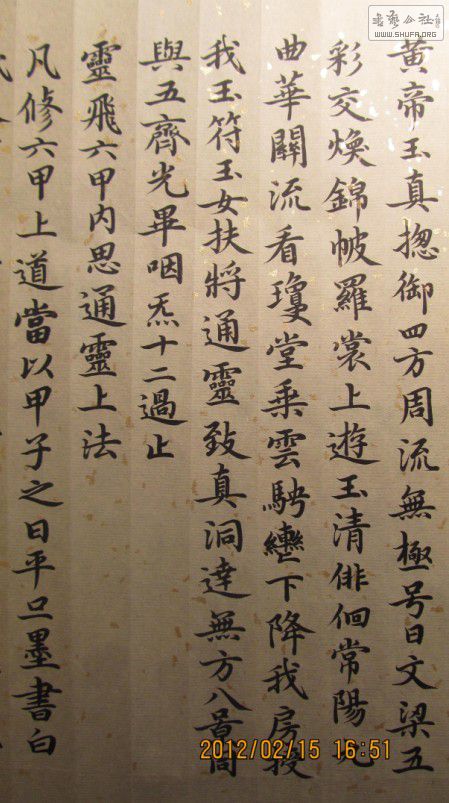 黃帝玉真揔御四方周流無極号曰文梁五
彩交煥錦帔羅裳上遊玉清俳佪常陽九
曲華關流看瓊堂乘雲騁轡下降我房授
我玉符玉女扶將通靈致真洞達無方八景同
與五齊光畢咽炁十二過止
靈飛六甲內思通靈上法
凡修六甲上道當以甲子之日平旦墨書白
書藝公社
WWW.SHUFA.ORG
2012/02/15 16:51